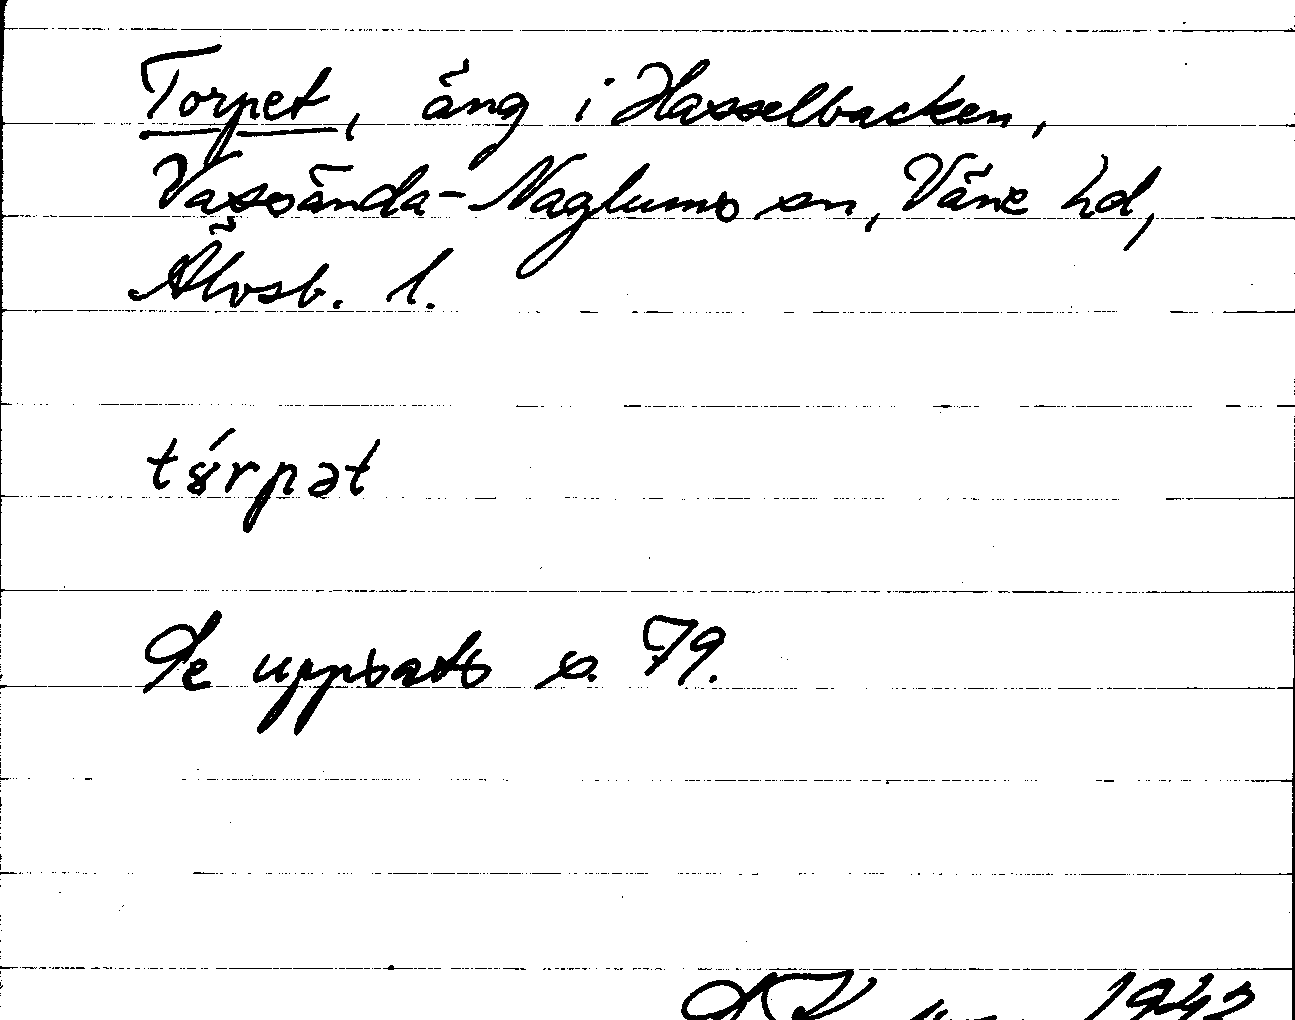 Torpet, äng i Hasselbacken,
Vassända-Naglums sn, Väne hd,
Älvsb. l.
tórpət
Se uppsats s. 79.
1942